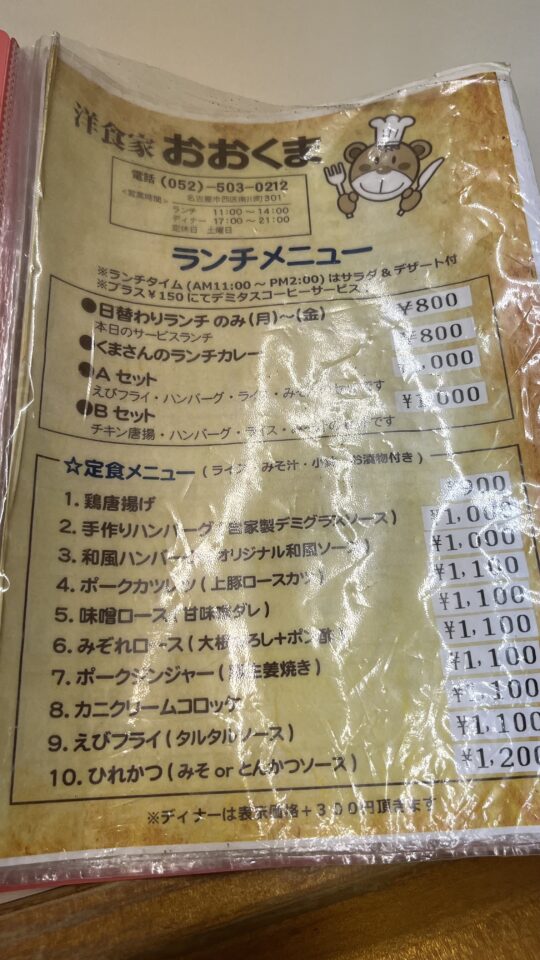 洋食家 おおくま
電話 (052)-503-0212
名古屋市西区南川町301
<営業時間>
ランチ 11:00～14:00
ディナー 17:00～21:00
定休日 土曜日
ランチメニュー
※ランチタイム(AM11:00～PM2:00)はサラダ&デザート付
※プラス¥150にてデミタスコーヒーサービス!
●日替わりランチ のみ(月)～(金) ¥800
本日のサービスランチ
●くまさんのランチカレー ¥800
●Aセット ,000
えびフライ・ハンバーグ・ライス・みそ です
●Bセット ¥1,000
チキン唐揚・ハンバーグ・ライス・ です
☆定食メニュー(ライス・みそ汁・小鉢・お漬物付き)
1.鶏唐揚げ ¥900
2.手作りハンバーグ(自家製デミグラスソース) ¥1,000
3.和風ハンバーグ(オリジナル和風ソース) ¥1,000
4.ポークカツレツ(上豚ロースカツ) ¥1,100
5.味噌ロース(甘味噌ダレ) ¥1,100
6.みぞれロース(大根おろし+ポン酢) ¥1,100
7.ポークジンジャー(豚生姜焼き) ¥1,100
8.カニクリームコロッケ ¥1,100
9.えびフライ(タルタルソース) ¥1,100
10.ひれかつ(みそorとんかつソース) ¥1,200
※ディナーは表示価格+300円頂きます